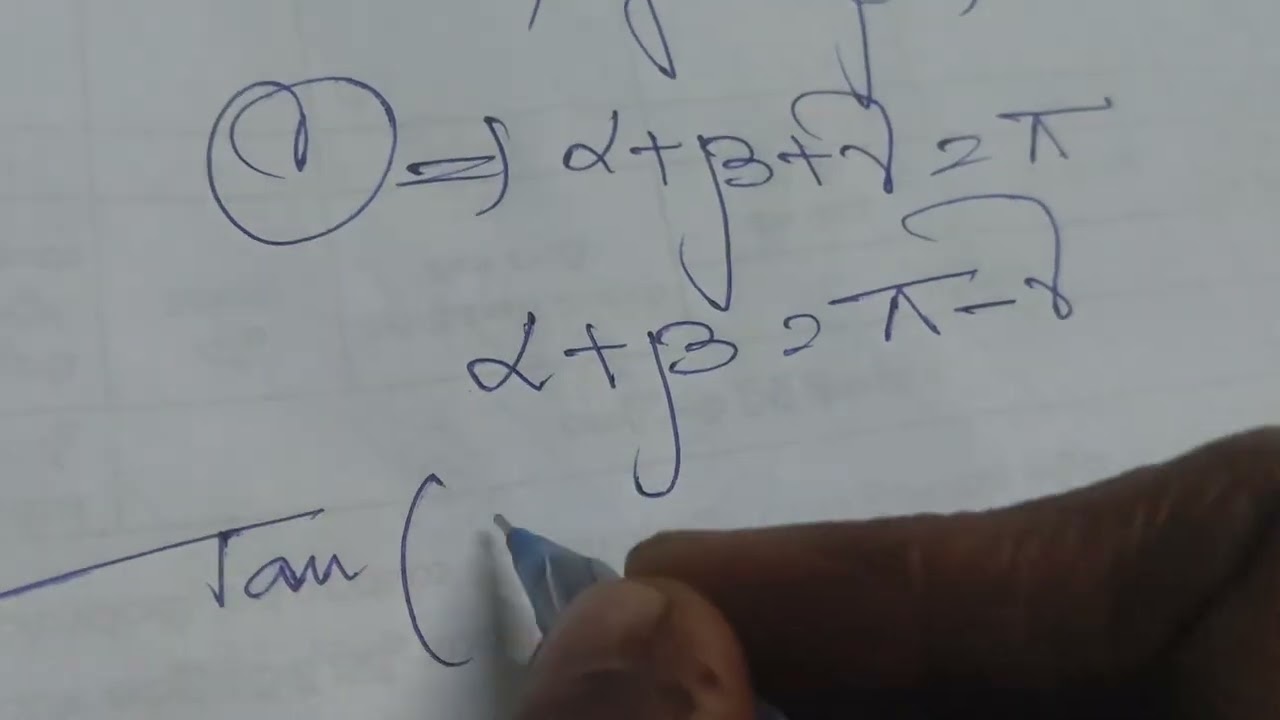 ① ⇒ α + β + γ = π
α + β = π - γ
Tan (